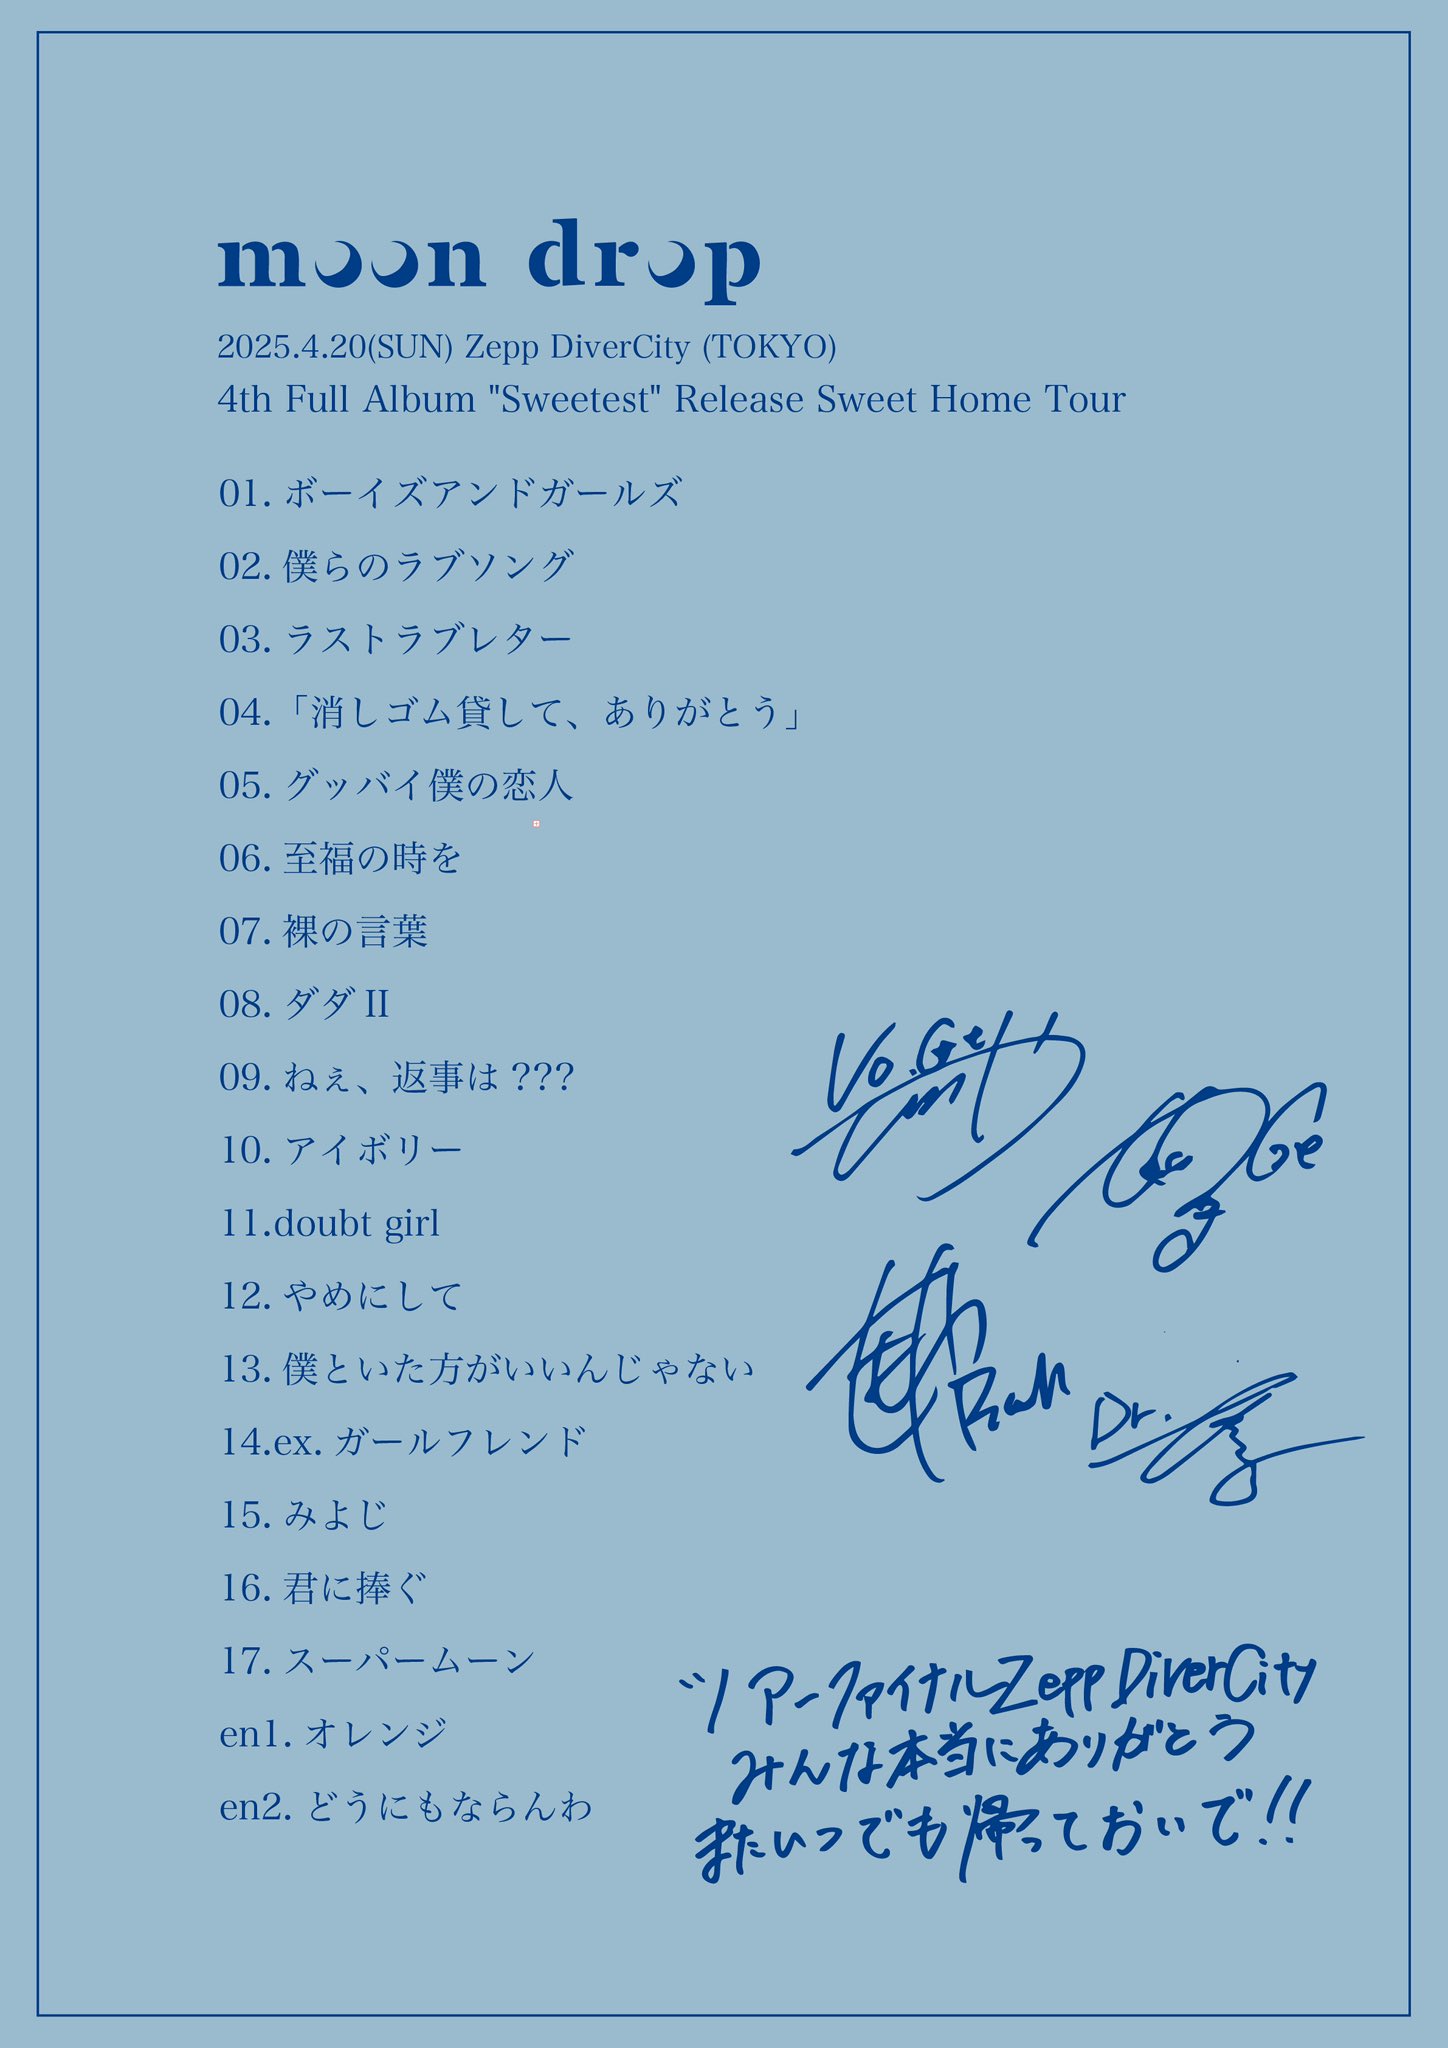 moon drop
2025.4.20(SUN) Zepp DiverCity (TOKYO)
4th Full Album "Sweetest" Release Sweet Home Tour
01. ボーイズアンドガールズ
02. 僕らのラブソング
03. ラストラブレター
04.「消しゴム貸して、ありがとう」
05. グッバイ僕の恋人
06. 至福の時を
07. 裸の言葉
08. ダダⅡ
09. ねぇ、返事は???
10. アイボリー
11.doubt girl
12. やめにして
13. 僕といた方がいいんじゃない
14.ex. ガールフレンド
15. みよじ
16. 君に捧ぐ
17. スーパームーン
en1. オレンジ
en2. どうにもならんわ
Vo.Gt
Ba
Dr.
ツアーファイナルZepp DiverCity
みんな本当にありがとう
またいつでも帰っておいで!!